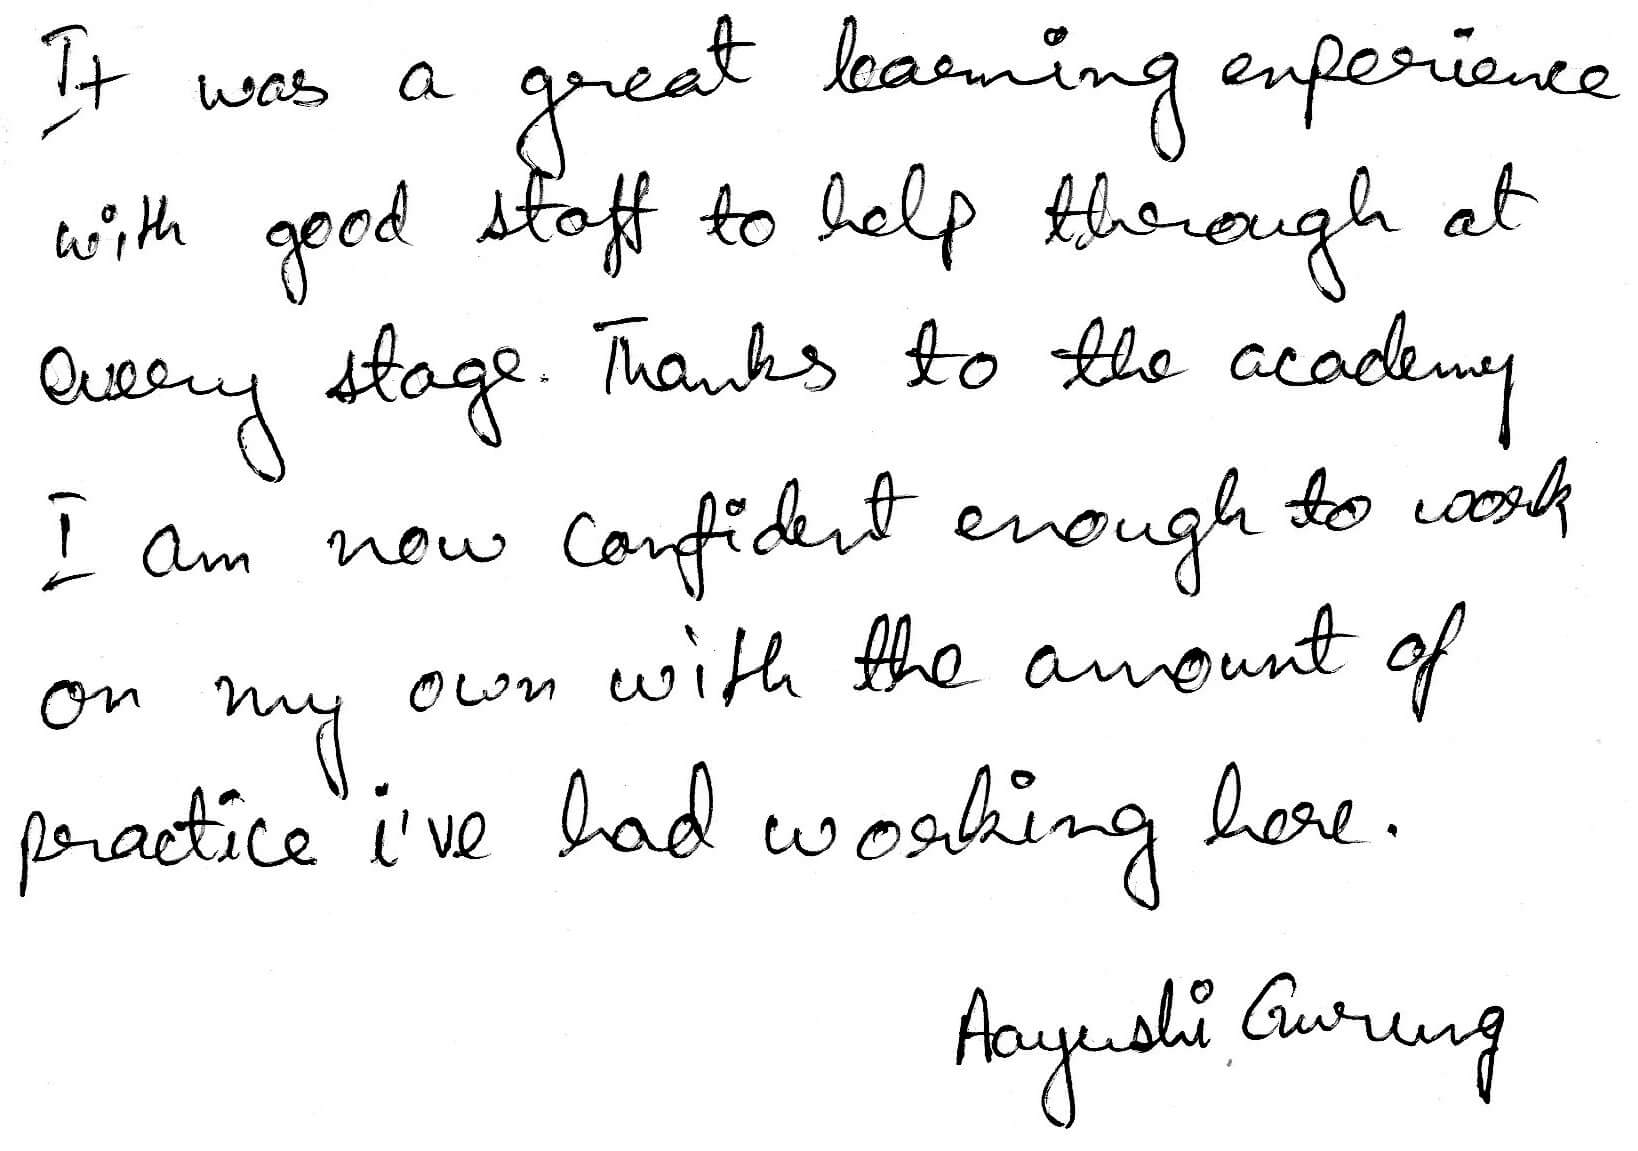 It was a great learning experience
with good staff to help through at
every stage. Thanks to the academy
I am now confident enough to work
on my own with the amount of
practice i've had working here.
Aayushi Gurung